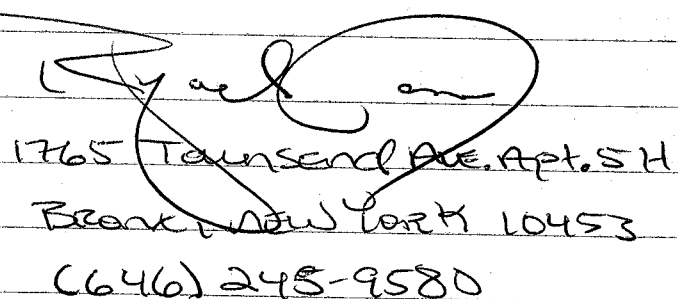 1765 Townsend Ave. Apt. 5H
Bronx, New York 10453
(646) 245-9580